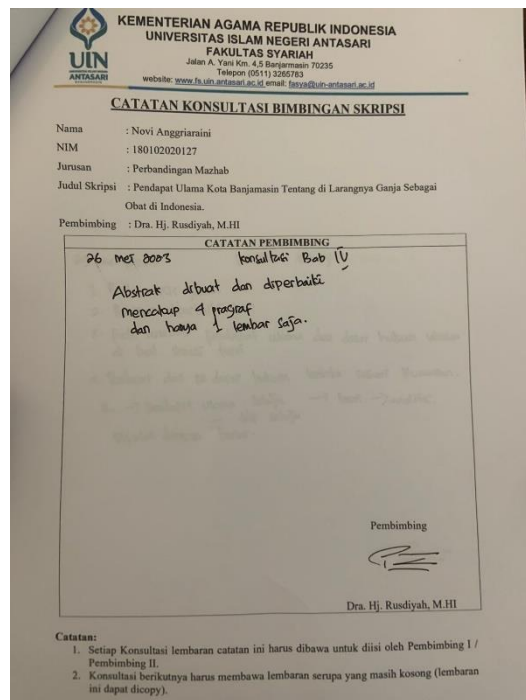 UIN
ANTASARI
KEMENTERIAN AGAMA REPUBLIK INDONESIA
UNIVERSITAS ISLAM NEGERI ANTASARI
FAKULTAS SYARIAH
Jalan A. Yani Km. 4,5 Banjarmasin 70235
Telepon (0511) 3265783
website: www.fs.uin.antasari.ac.id email: fasya@uin-antasari.ac.id
CATATAN KONSULTASI BIMBINGAN SKRIPSI
Nama : Novi Anggriaraini
NIM : 180102020127
Jurusan : Perbandingan Mazhab
Judul Skripsi : Pendapat Ulama Kota Banjamasin Tentang di Larangnya Ganja Sebagai
Obat di Indonesia.
Pembimbing : Dra. Hj. Rusdiyah, M.HI
CATATAN PEMBIMBING
26 mei konsultasi Bab IV
Abstrak dibuat dan diperbaiki
mencakup 4 pragraf
dan hanya 1 lembar saja.
Pembimbing
Dra. Hj. Rusdiyah, M.HI
Catatan:
1. Setiap Konsultasi lembaran catatan ini harus dibawa untuk diisi oleh Pembimbing I /
Pembimbing II.
2. Konsultasi berikutnya harus membawa lembaran serupa yang masih kosong (lembaran
ini dapat dicopy).